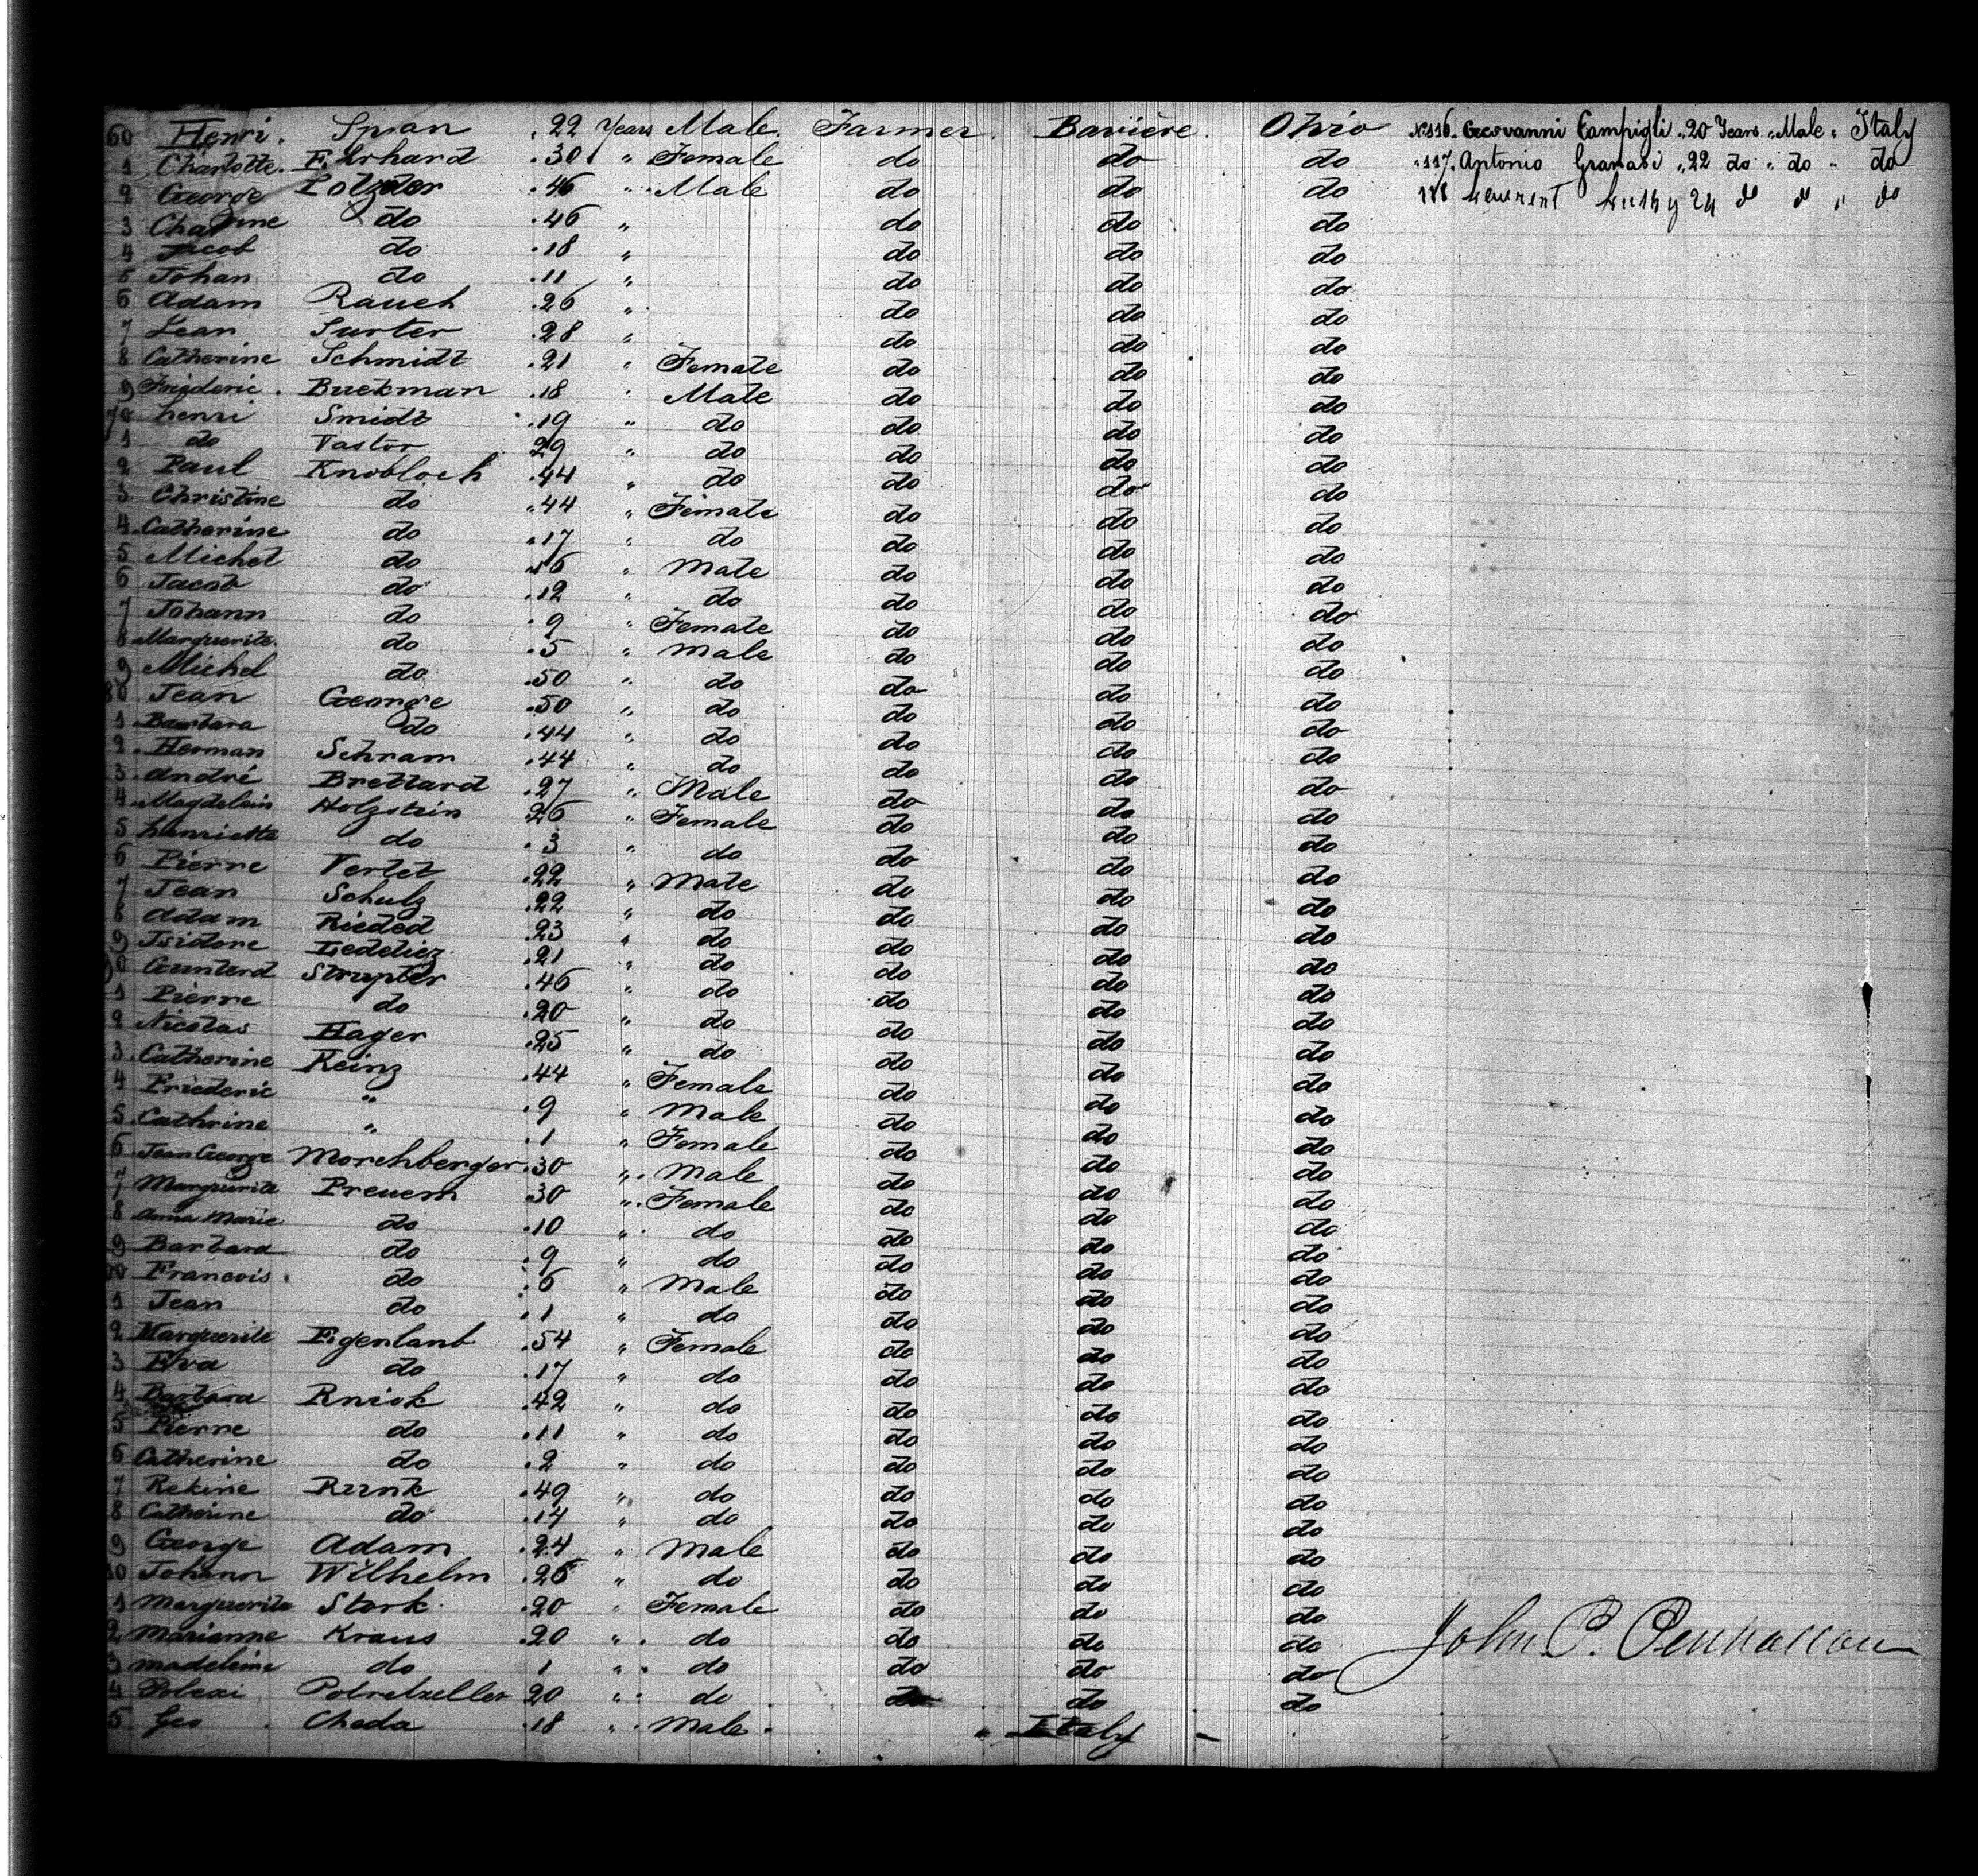 60 Henri. Spian .22 Years Male. Farmer. Bavière. Ohio
1 Charlotte. Ehrhard .30 " Female do do do
2 George Lotzder .46 " Male do do do
3 do .46 " do do do
4 Jacob do .18 " do do do
5 Johan do .11 " do do do
6 Adam Rauch .26 " do do do
7 Jean Surter .28 " do do do
8 Catherine Schmidt .21 " Female do do do
9 Friederic. Buckman .18 " Male do do do
70 henri Smidt .19 " do do do do
1 do Pastor 29 " do do do do
2 Paul Knobloch .44 " do do do do
3 Christine do .44 " Female do do do
4 Catherine do .17 " do do do do
5 Michel do 16 " Male do do do
6 Jacob do .12 " do do do do
7 Johann do .9 " Female do do do
8 Marguerite. do .5 " Male do do do
9 Michel do .50 " do do do do
80 Jean George .50 " do do do do
1 Barbara do .44 " do do do do
2. Herman Schram .44 " do do do do
3. André Brettard .27 " Male do do do
4. Magdelein Holzstein 26 " Female do do do
5 henriette do .3 " do do do do
6 Pierre Vertet .22 " Male do do do
7 Jean Schulz .22 " do do do do
8 Adam Rieded .23 " do do do do
9 Isidore Ledeliez. .21 " do do do do
90 Gunterd Strupter .46 " do do do do
1 Pierre do .20 " do do do do
2 Nicolas Hager .25 " do do do do
3. Catherine Keinz .44 " Female do do do
4 Friederic " .9 " Male do do do
5. Cathrine " .1 " Female do do do
6 Jean George Morchberger .30 " Male do do do
7 Marguerite Preuem .30 " Female do do do
8 Anna Marie do .10 " do do do do
9 Barbara do .9 " do do do do
00 Francois. do .6 " Male do do do
1 Jean do .1 " do do do do
2 Marguerite Eigenlant .54 " Female do do do
3 Eva do .17 " do do do do
4 Barbara Rniok .42 " do do do do
5 Pierre do .11 " do do do do
6 Catherine do .2 " do do do do
7 Rekine Runk .49 " do do do do
8 Catherine do .14 " do do do do
9 George Adam .24 " Male do do do
10 Johann Wilhelm .26 " do do do do
1 Marguerite Stark. .20 " Female do do do
2 Marianne Kraus .20 " do do do do
3 Madeleine do 1 " do do do do
4 Polexi Pobretzeller 20 " do do do do
5. Geo. Cheda .18 " Male. " Italy -
No 116. Geovanni Campigli " 20 Years " Male " Italy
" 117. Antonio Granasi " 22 do " do " do
118 Laurent 24 do do " do
John P. Penhallow